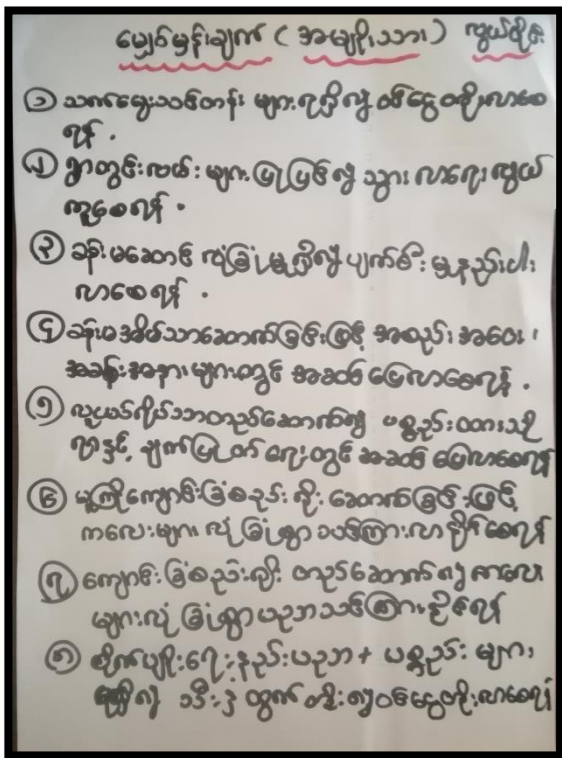 မျှော်မှန်းချက် ( အမျိုးသား ) လွယ်စိုင်
၁ သက်မွေးသင်တန်း များရရှိလို့ ဝင်ငွေတိုးလာစေ
ရန် .
၂ ရွာတွင်းလမ်း များပြုပြင်လို့ သွားလာရေးလွယ်
ကူစေရန် .
၃ ခန်းမဆောင် လုံခြုံမှုရှိလို့ ပျက်စီးမှုနည်းပါး
လာစေရန် .
၄ ခန်းမအစိတ်သာဆောက်ခြင်းဖြင့် အစည်းအဝေး ၊
အခန်းအနားများတွင် အဆင်ပြေလာစေရန် .
၅ လူငယ်ကိုယ်သာတည်ဆောက်လို့ ပစ္စည်းထားသို
ရာနှင့် ချက်ပြုတ်ရေးတွင် အဆင်ပြေလာစေရန်
၆ မူကြိုကျောင်းခြံစည်းရိုး ဆောက်ခြင်းဖြင့်
ကလေးများ လုံခြုံစွာ သင်ကြားလာနိုင်စေရန်
၇ ကျောင်းခြံစည်းရိုး တည်ဆောက်၍ ကလေး
များလုံခြုံစွာပညာသင်ကြားနိုင်ရန်
၈ စိုက်ပျိုးရေးနည်းပညာ + ပစ္စည်း များ
ရရှိလို့ သီးနှံထွက်တိုး၍ဝင်ငွေတိုးလာစေရန်